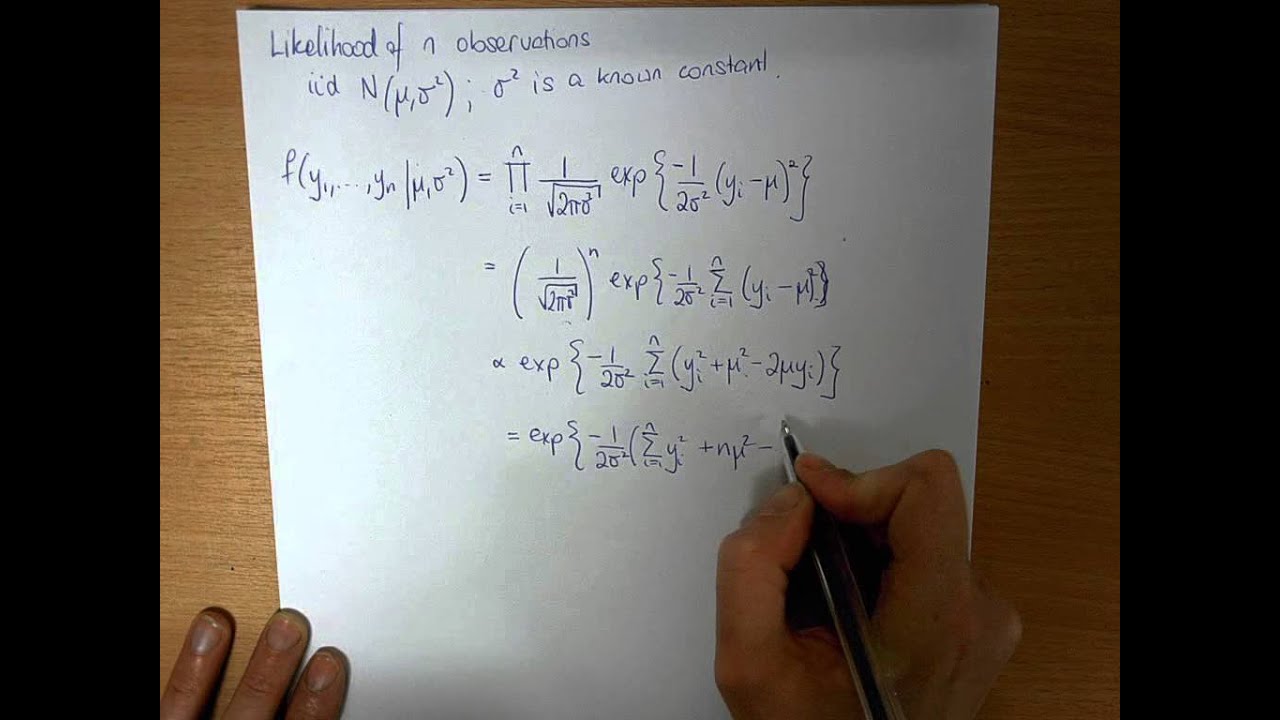 Likelihood of n observations
iid N(μ,σ²) ; σ² is a known constant.
f(y₁,...,yₙ|μ,σ²) = ∏ᵢ₌₁ⁿ 1/√(2πσ²) exp{-1/2σ² (yᵢ-μ)²}
= (1/√(2πσ²))ⁿ exp{-1/2σ² ∑ᵢ₌₁ⁿ (yᵢ-μ)²}
∝ exp{-1/2σ² ∑ᵢ₌₁ⁿ (yᵢ²+μ²-2μyᵢ)}
= exp{-1/2σ² (∑ᵢ₌₁ⁿ yᵢ² + nμ² -